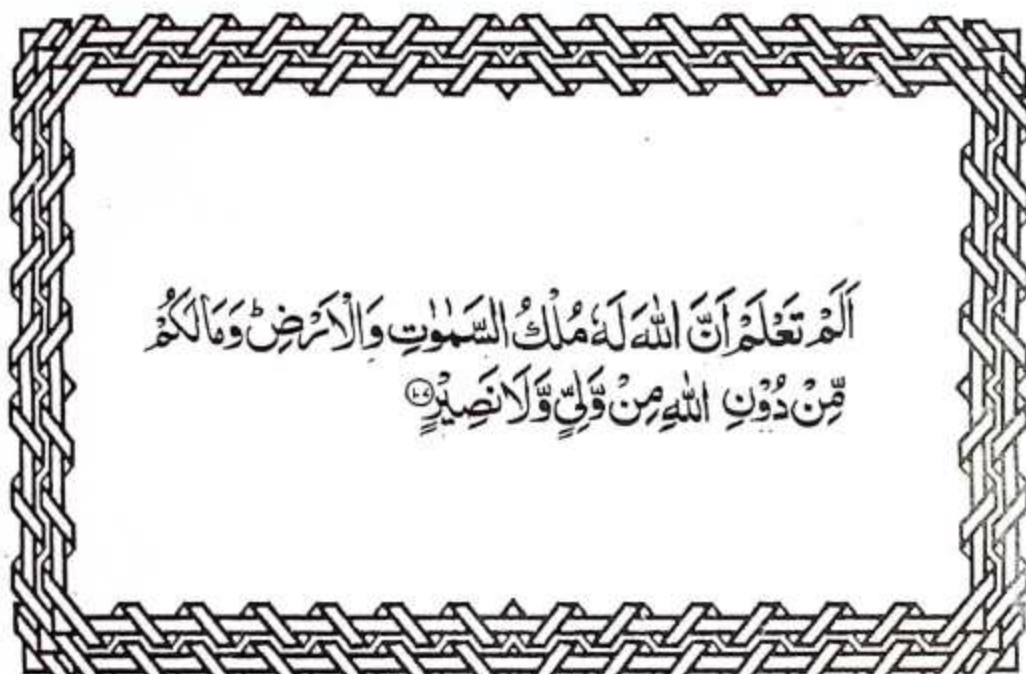 اَلَمْ تَعْلَمْ اَنَّ اللّٰهَ لَهٗ مُلْكُ السَّمٰوٰتِ وَالْاَرْضِ ؕ وَمَا لَكُمْ
مِّنْ دُوْنِ اللّٰهِ مِنْ وَّلِيٍّ وَّلَا نَصِيْرٍ ۝۱۰۷